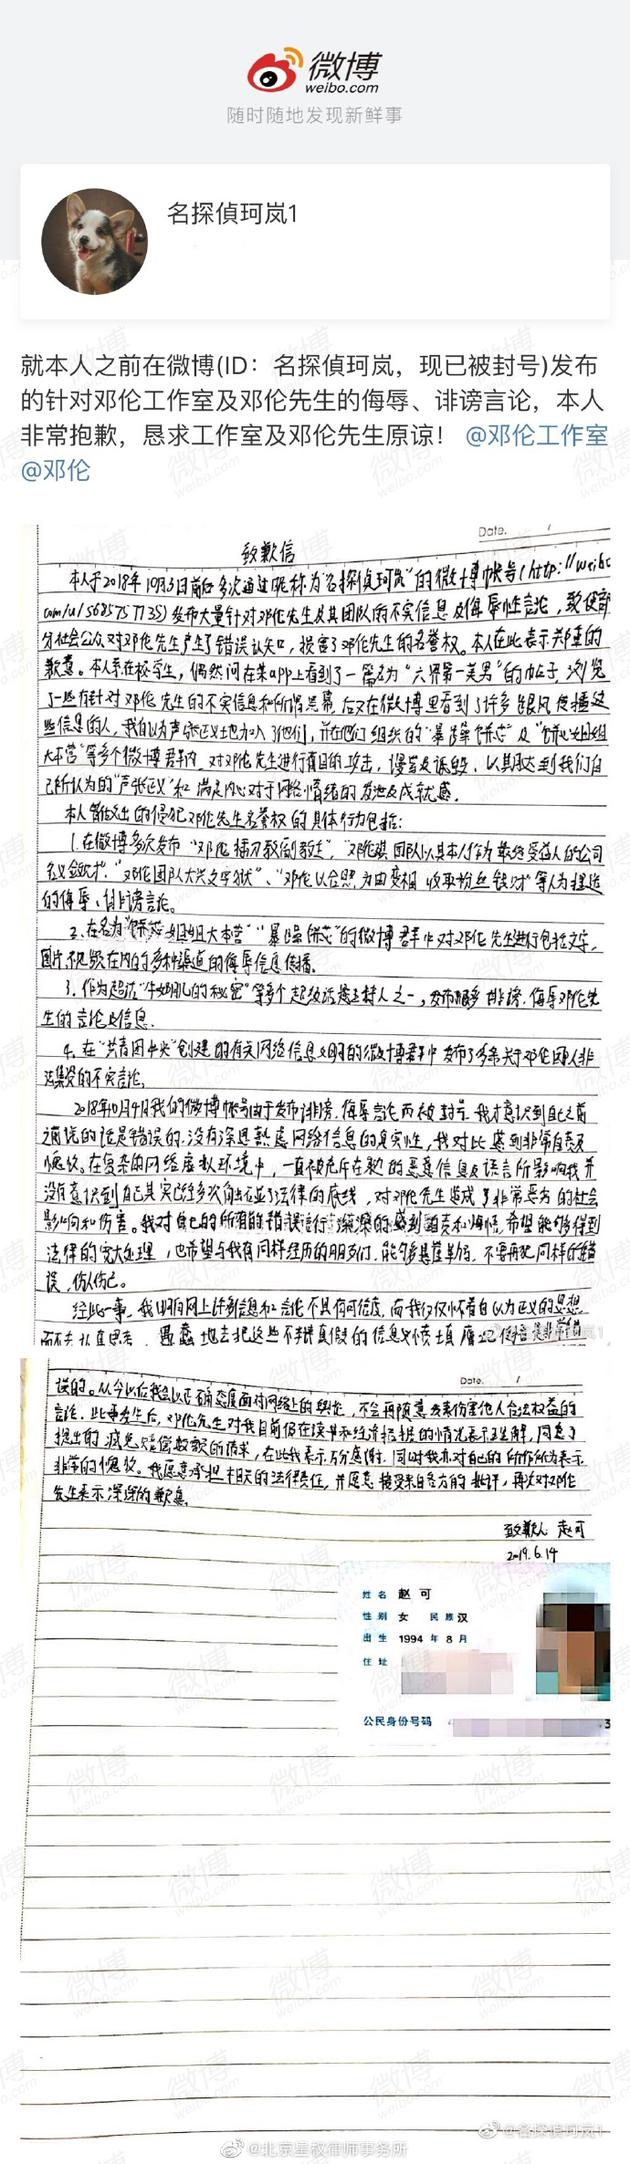 微博
weibo.com
随时随地发现新鲜事
名探偵珂岚1
就本人之前在微博(ID：名探偵珂岚，现已被封号)发布
的针对邓伦工作室及邓伦先生的侮辱、诽谤言论，本人
非常抱歉，恳求工作室及邓伦先生原谅！ @邓伦工作室
@邓伦
Date. /
致歉信
本人于2018年10月3日前后多次通过昵称为"名探偵珂岚"的微博帐号(http://weibo.
com/u/5685757735)发布大量针对邓伦先生及其团队的不实信息及侮辱性言论，致使部
分社会公众对邓伦先生产生了错误认知，损害了邓伦先生的名誉权。本人在此表示郑重的
歉意。本人系在校学生，偶然间在某app上看到了一篇名为"六界第一美男"的帖子，浏览
了一些有针对邓伦先生的不实信息和所谓黑幕，后又在微博里看到了许多跟风传播这
些信息的人，我自以为声张正义地加入了他们，并在他们组织的"暴躁饼芯"及"饼芯姐姐
大本营"等多个微博群内，对邓伦先生进行盲目的攻击，谩骂及诋毁，以其达到我们自
己所认为的"声张正义"和满足内心对于网络情绪的发泄及成就感。
本人曾做出的侵犯邓伦先生名誉权的具体行为包括：
1.在微博多次发布
"邓伦团队大兴文字狱"、"邓伦以合照为由变相收取粉丝钱财"等人为捏造
的侮辱、诽谤言论。
2.在名为"饼芯姐姐大本营""暴躁饼芯"的微博群中对邓伦先生进行包括文字、
图片、视频在内的多种渠道的侮辱信息传播。
3.作为超话 的秘密"等多个超级话题主持人之一，发布很多诽谤、侮辱邓伦先
生的言论及信息.
4.在"共青团中央"创建的有关网络信息文明的微博群中发布了多条关于邓伦团队非
法集资的不实言论。
2018年10月4日我的微博帐号由于发布诽谤、侮辱言论而被封号，我才意识到自己之前
所说的话是错误的，没有深思熟虑网络信息的真实性，我对此感到非常自责及
愧疚。在复杂的网络虚拟环境中，一直被充斥在 的恶意信息及语言所影响，我并
没有意识到自己其实已经多次触及了法律的底线，对邓伦先生造成了非常恶劣的社会
影响和伤害。我对自己的所有的错误言行深深的感到羞愧和悔恨，希望能够得到
法律的宽大处理，也希望与我有同样经历的朋友们，能够悬崖勒马，不要再犯同样的错
误，伤人伤己。
经此一事，我明白网上许多信息和言论不具有可信度，而我仅仅怀着自以为正义的思想
而不去认真思考，愚蠢地去把这些不辨真假的信息
Date. /
误的。从今以后我会以正确态度面对网络上的舆论，不会再随意去发伤害他人合法权益的
言论。此事发生后，邓伦先生对我目前仍在读书和经济拮据的情况表示理解，同意了
我提出的减免赔偿数额的请求，在此我表示万分感谢。同时我亦对自己的所作所为表示
非常的愧疚。我愿意承担相关的法律责任，并愿意接受来自各方的批评，再次对邓伦
先生表示深深的歉意。
致歉人 赵可
2019.6.14
姓名 赵可
性别 女 民族 汉
出生 1994 年 8 月
住址
公民身份号码 3
@名探偵珂岚1
@北京星权律师事务所